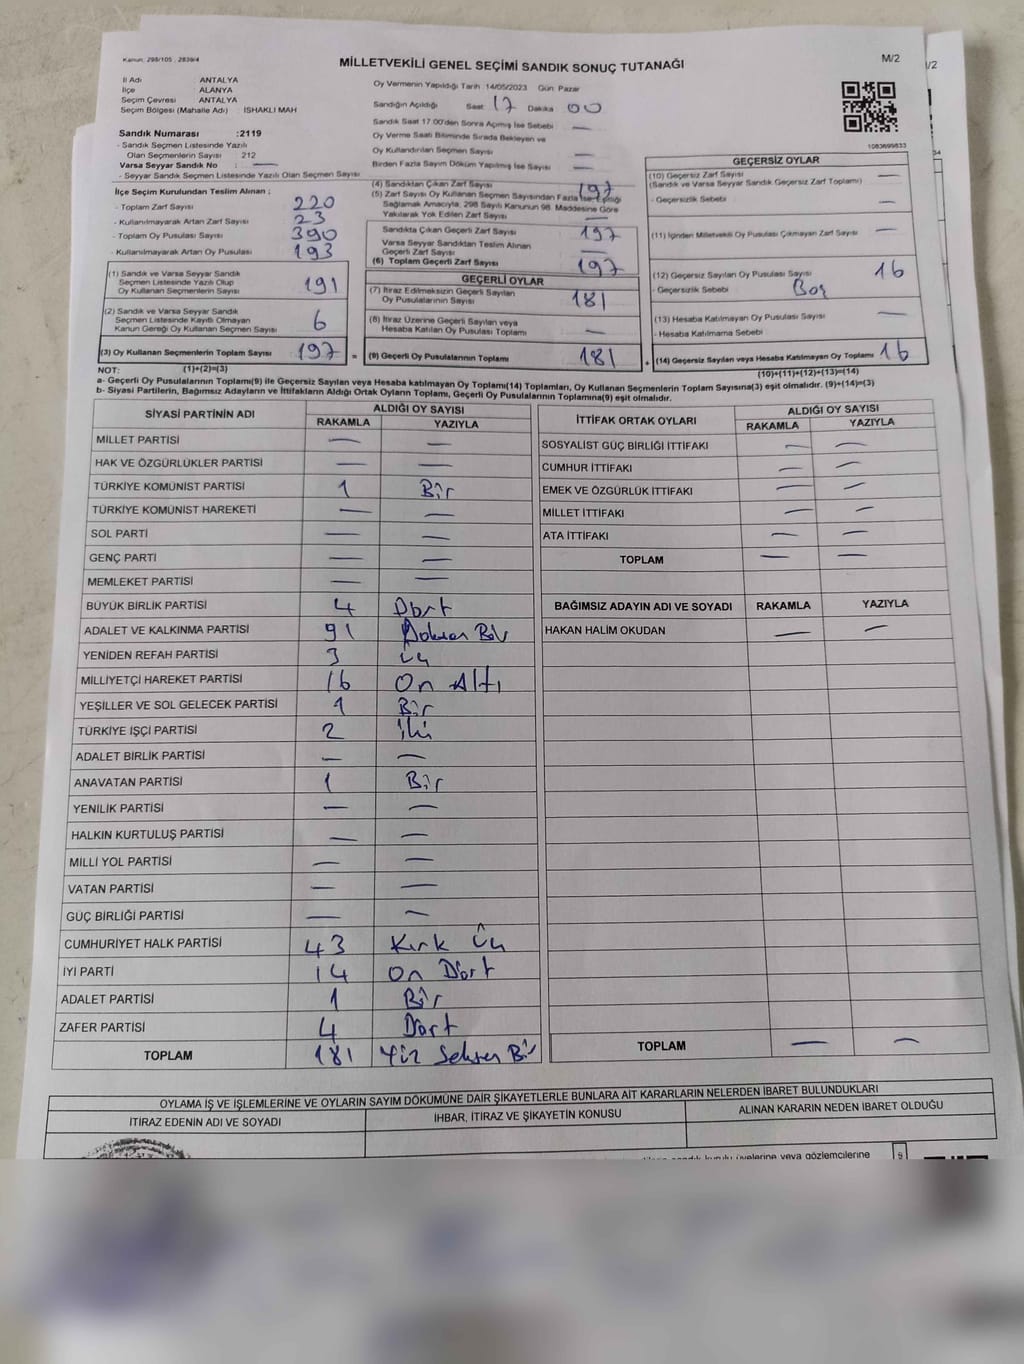 Kanun: 298/105 , 2839/4
MİLLETVEKİLİ GENEL SEÇİMİ SANDIK SONUÇ TUTANAĞI
M/2
/2
İl Adı ANTALYA
İlçe ALANYA
Seçim Çevresi ANTALYA
Seçim Bölgesi (Mahalle Adı) : ISHAKLI MAH
Sandık Numarası :2119
- Sandık Seçmen Listesinde Yazılı
Olan Seçmenlerin Sayısı 212
Varsa Seyyar Sandık No : —
- Seyyar Sandık Seçmen Listesinde Yazılı Olan Seçmen Sayısı
İlçe Seçim Kurulundan Teslim Alınan ;
- Toplam Zarf Sayısı 220
- Kullanılmayarak Artan Zarf Sayısı 23
- Toplam Oy Pusulası Sayısı 390
- Kullanılmayarak Artan Oy Pusulası 193
(1) Sandık ve Varsa Seyyar Sandık
Seçmen Listesinde Yazılı Olup
Oy Kullanan Seçmenlerin Sayısı 191
(2) Sandık ve Varsa Seyyar Sandık
Seçmen Listesinde Kayıtlı Olmayan
Kanun Gereği Oy Kullanan Seçmen Sayısı 6
(3) Oy Kullanan Seçmenlerin Toplam Sayısı 197 =
Oy Vermenin Yapıldığı Tarih 14/05/2023 Gün Pazar
Sandığın Açıldığı Saat 17 Dakika 00
Sandık Saat 17.00'den Sonra Açmış İse Sebebi —
Oy Verme Saati Bitiminde Sırada Bekleyen ve
Oy Kullandırılan Seçmen Sayısı —
Birden Fazla Sayım Döküm Yapılmış İse Sayısı —
(4) Sandıktan Çıkan Zarf Sayısı 197
(5) Zarf Sayısı Oy Kullanan Seçmen Sayısından Fazla İse Eşitliği
Sağlamak Amacıyla, 298 Sayılı Kanunun 98. Maddesine Göre
Yakılarak Yok Edilen Zarf Sayısı —
Sandıkta Çıkan Geçerli Zarf Sayısı 197
Varsa Seyyar Sandıktan Teslim Alınan
Geçerli Zarf Sayısı —
(6) Toplam Geçerli Zarf Sayısı 197
GEÇERLİ OYLAR
(7) İtiraz Edilmeksizin Geçerli Sayılan
Oy Pusulalarının Sayısı 181
(8) İtiraz Üzerine Geçerli Sayılan veya
Hesaba Katılan Oy Pusulası Toplamı —
(9) Geçerli Oy Pusulalarının Toplamı 181 +
1083699833
GEÇERSİZ OYLAR
(10) Geçersiz Zarf Sayısı —
(Sandık ve Varsa Seyyar Sandık Geçersiz Zarf Toplamı)
- Geçersizlik Sebebi —
(11) İçinden Milletvekili Oy Pusulası Çıkmayan Zarf Sayısı —
(12) Geçersiz Sayılan Oy Pusulası Sayısı 16
- Geçersizlik Sebebi Boş
(13) Hesaba Katılmayan Oy Pusulası Sayısı —
- Hesaba Katılmama Sebebi
(14) Geçersiz Sayılan veya Hesaba Katılmayan Oy Toplamı 16
NOT: (1)+(2)=(3)
(10)+(11)+(12)+(13)=(14)
a- Geçerli Oy Pusulalarının Toplamı(9) ile Geçersiz Sayılan veya Hesaba katılmayan Oy Toplamı(14) Toplamları, Oy Kullanan Seçmenlerin Toplam Sayısına(3) eşit olmalıdır. (9)+(14)=(3)
b- Siyasi Partilerin, Bağımsız Adayların ve İttifakların Aldığı Ortak Oyların Toplamı, Geçerli Oy Pusulalarının Toplamına(9) eşit olmalıdır.
SİYASİ PARTİNİN ADI ALDIĞI OY SAYISI
RAKAMLA YAZIYLA
MİLLET PARTİSİ — —
HAK VE ÖZGÜRLÜKLER PARTİSİ — —
TÜRKİYE KOMÜNİST PARTİSİ 1 Bir
TÜRKİYE KOMÜNİST HAREKETİ — —
SOL PARTİ — —
GENÇ PARTİ — —
MEMLEKET PARTİSİ — —
BÜYÜK BİRLİK PARTİSİ 4 Dört
ADALET VE KALKINMA PARTİSİ 91 Doksan Bir
YENİDEN REFAH PARTİSİ 3 üç
MİLLİYETÇİ HAREKET PARTİSİ 16 On Altı
YEŞİLLER VE SOL GELECEK PARTİSİ 1 Bir
TÜRKİYE İŞÇİ PARTİSİ 2 iki
ADALET BİRLİK PARTİSİ — —
ANAVATAN PARTİSİ 1 Bir
YENİLİK PARTİSİ — —
HALKIN KURTULUŞ PARTİSİ — —
MİLLİ YOL PARTİSİ — —
VATAN PARTİSİ — —
GÜÇ BİRLİĞİ PARTİSİ — —
CUMHURİYET HALK PARTİSİ 43 Kırk üç
İYİ PARTİ 14 on Dört
ADALET PARTİSİ 1 Bir
ZAFER PARTİSİ 4 Dört
TOPLAM 181 Yüz Seksen Bir
İTTİFAK ORTAK OYLARI ALDIĞI OY SAYISI
RAKAMLA YAZIYLA
SOSYALİST GÜÇ BİRLİĞİ İTTİFAKI — —
CUMHUR İTTİFAKI — —
EMEK VE ÖZGÜRLÜK İTTİFAKI — —
MİLLET İTTİFAKI — —
ATA İTTİFAKI — —
TOPLAM — —
BAĞIMSIZ ADAYIN ADI VE SOYADI RAKAMLA YAZIYLA
HAKAN HALİM OKUDAN — —
TOPLAM — —
OYLAMA İŞ VE İŞLEMLERİNE VE OYLARIN SAYIM DÖKÜMÜNE DAİR ŞİKAYETLERLE BUNLARA AİT KARARLARIN NELERDEN İBARET BULUNDUKLARI
İTİRAZ EDENİN ADI VE SOYADI
İHBAR, İTİRAZ VE ŞİKAYETİN KONUSU
ALINAN KARARIN NEDEN İBARET OLDUĞU
sandık kurulu üyelerine veya gözlemcilerine
9